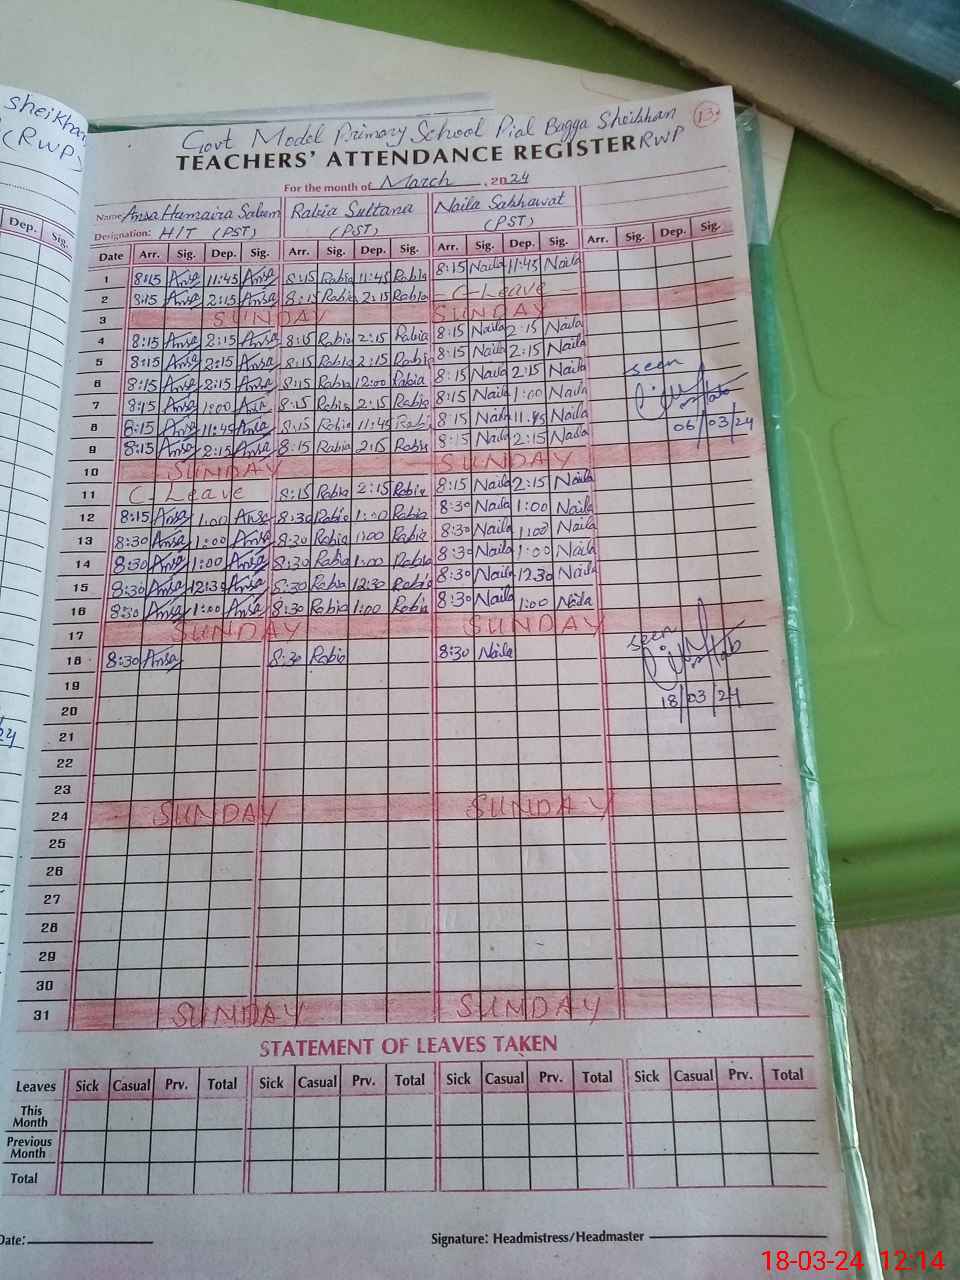 sheikhan
(RWP)
Dep. Sig.
Govt Model Primary School Pial Bagga Sheikhan RWP 13
TEACHERS' ATTENDANCE REGISTER
For the month of March, 2024
Name Ansa Humaira Saleem Rabia Sultana Naila Sakhawat
Designation: H/T (PST) (PST) (PST)
Date Arr. Sig. Dep. Sig. Arr. Sig. Dep. Sig. Arr. Sig. Dep. Sig. Arr. Sig. Dep. Sig.
1 8:15 Ansa 11:45 Ansa 8:15 Rabia 11:45 Rabia 8:15 Naila 11:45 Naila
2 8:15 Ansa 2:15 Ansa 8:15 Rabia 2:15 Rabia - C-Leave -
3 SUNDAY SUNDAY
4 8:15 Ansa 2:15 Ansa 8:15 Rabia 2:15 Rabia 8:15 Naila 2:15 Naila
5 8:15 Ansa 2:15 Ansa 8:15 Rabia 2:15 Rabia 8:15 Naila 2:15 Naila
6 8:15 Ansa 2:15 Ansa 8:15 Rabia 12:00 Rabia 8:15 Naila 2:15 Naila seen
7 8:15 Ansa 1:00 Ansa 8:15 Rabia 2:15 Rabia 8:15 Naila 1:00 Naila
8 8:15 Ansa 11:45 Ansa 8:15 Rabia 11:45 Rabia 8:15 Naila 11:45 Naila 06/03/24
9 8:15 Ansa 2:15 Ansa 8:15 Rabia 2:15 Rabia 8:15 Naila 2:15 Naila
10 SUNDAY SUNDAY
11 C-Leave 8:15 Rabia 2:15 Rabia 8:15 Naila 2:15 Naila
12 8:15 Ansa 1:00 Ansa 8:30 Rabia 1:00 Rabia 8:30 Naila 1:00 Naila
13 8:30 Ansa 1:00 Ansa 8:30 Rabia 1:00 Rabia 8:30 Naila 1:00 Naila
14 8:30 Ansa 1:00 Ansa 8:30 Rabia 1:00 Rabia 8:30 Naila 1:00 Naila
15 8:30 Ansa 12:30 Ansa 8:30 Rabia 12:30 Rabia 8:30 Naila 12:30 Naila
16 8:30 Ansa 1:00 Ansa 8:30 Rabia 1:00 Rabia 8:30 Naila 1:00 Naila
17 SUNDAY SUNDAY
18 8:30 Ansa 8:30 Rabia 8:30 Naila seen
19
20 18/03/24
21
22
23
24 SUNDAY SUNDAY
25
26
27
28
29
30
31 SUNDAY SUNDAY
STATEMENT OF LEAVES TAKEN
Leaves Sick Casual Prv. Total Sick Casual Prv. Total Sick Casual Prv. Total Sick Casual Prv. Total
This Month
Previous Month
Total
Date: Signature: Headmistress/Headmaster
18-03-24 12:14